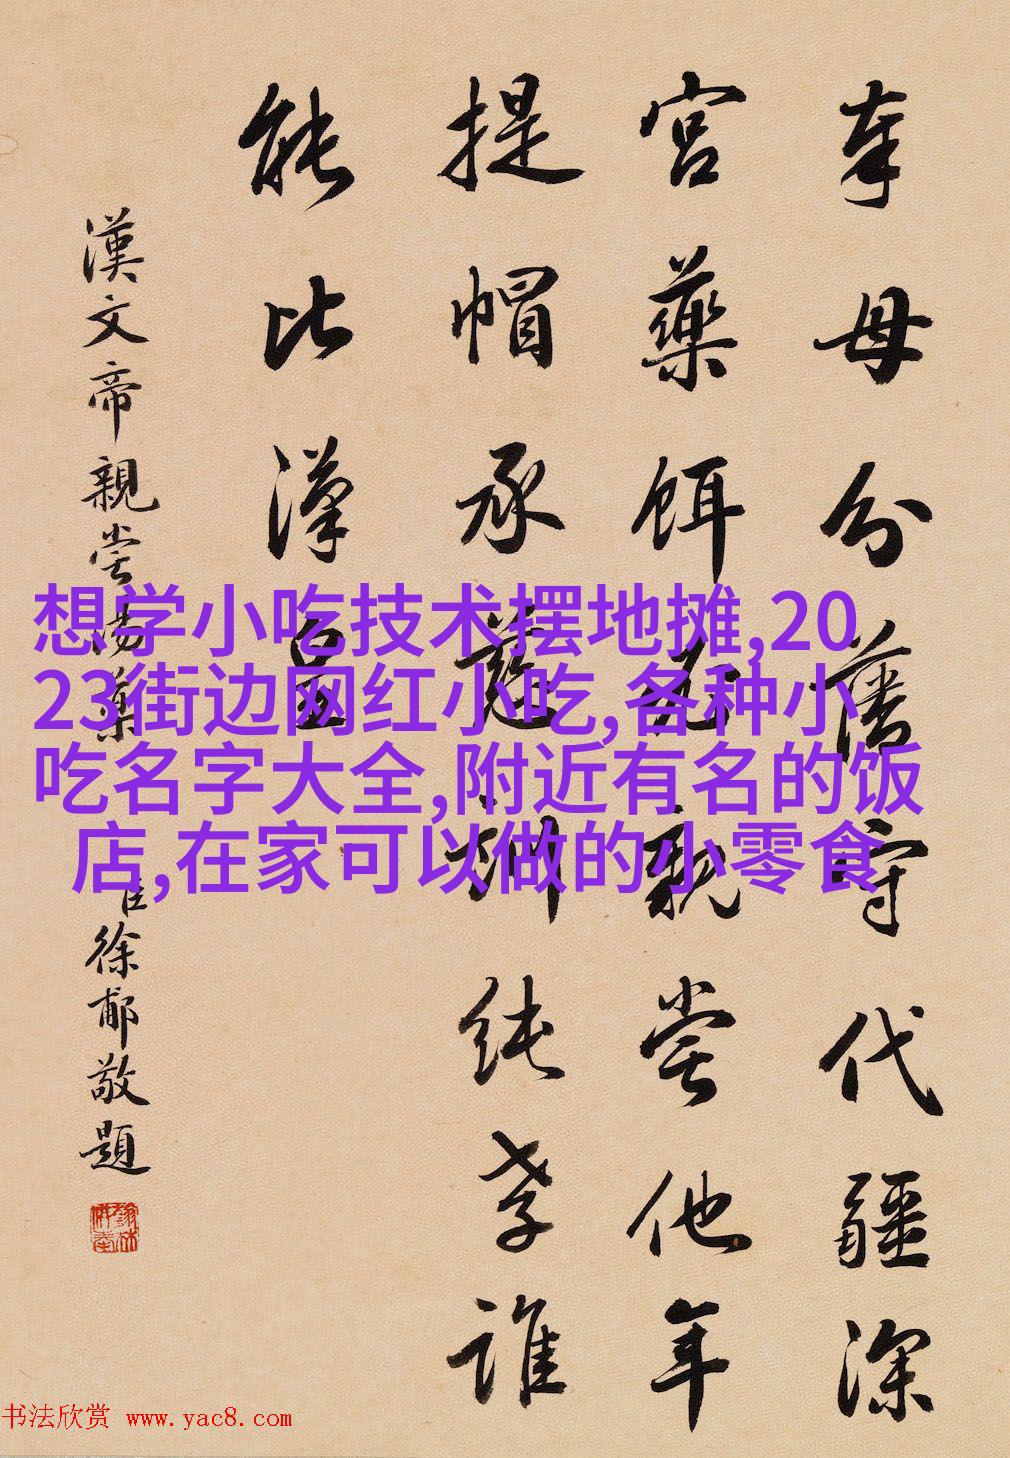 奉母分藩守代疆深
宮藥餌親嘗他年
提帽承訓純孝誰
能比漢皇
漢文帝親嘗湯藥
臣徐郙敬題
想学小吃技术摆地摊,20
23街边网红小吃,各种小
吃名字大全,附近有名的饭
店,在家可以做的小零食
书法欣赏 www.yac8.com